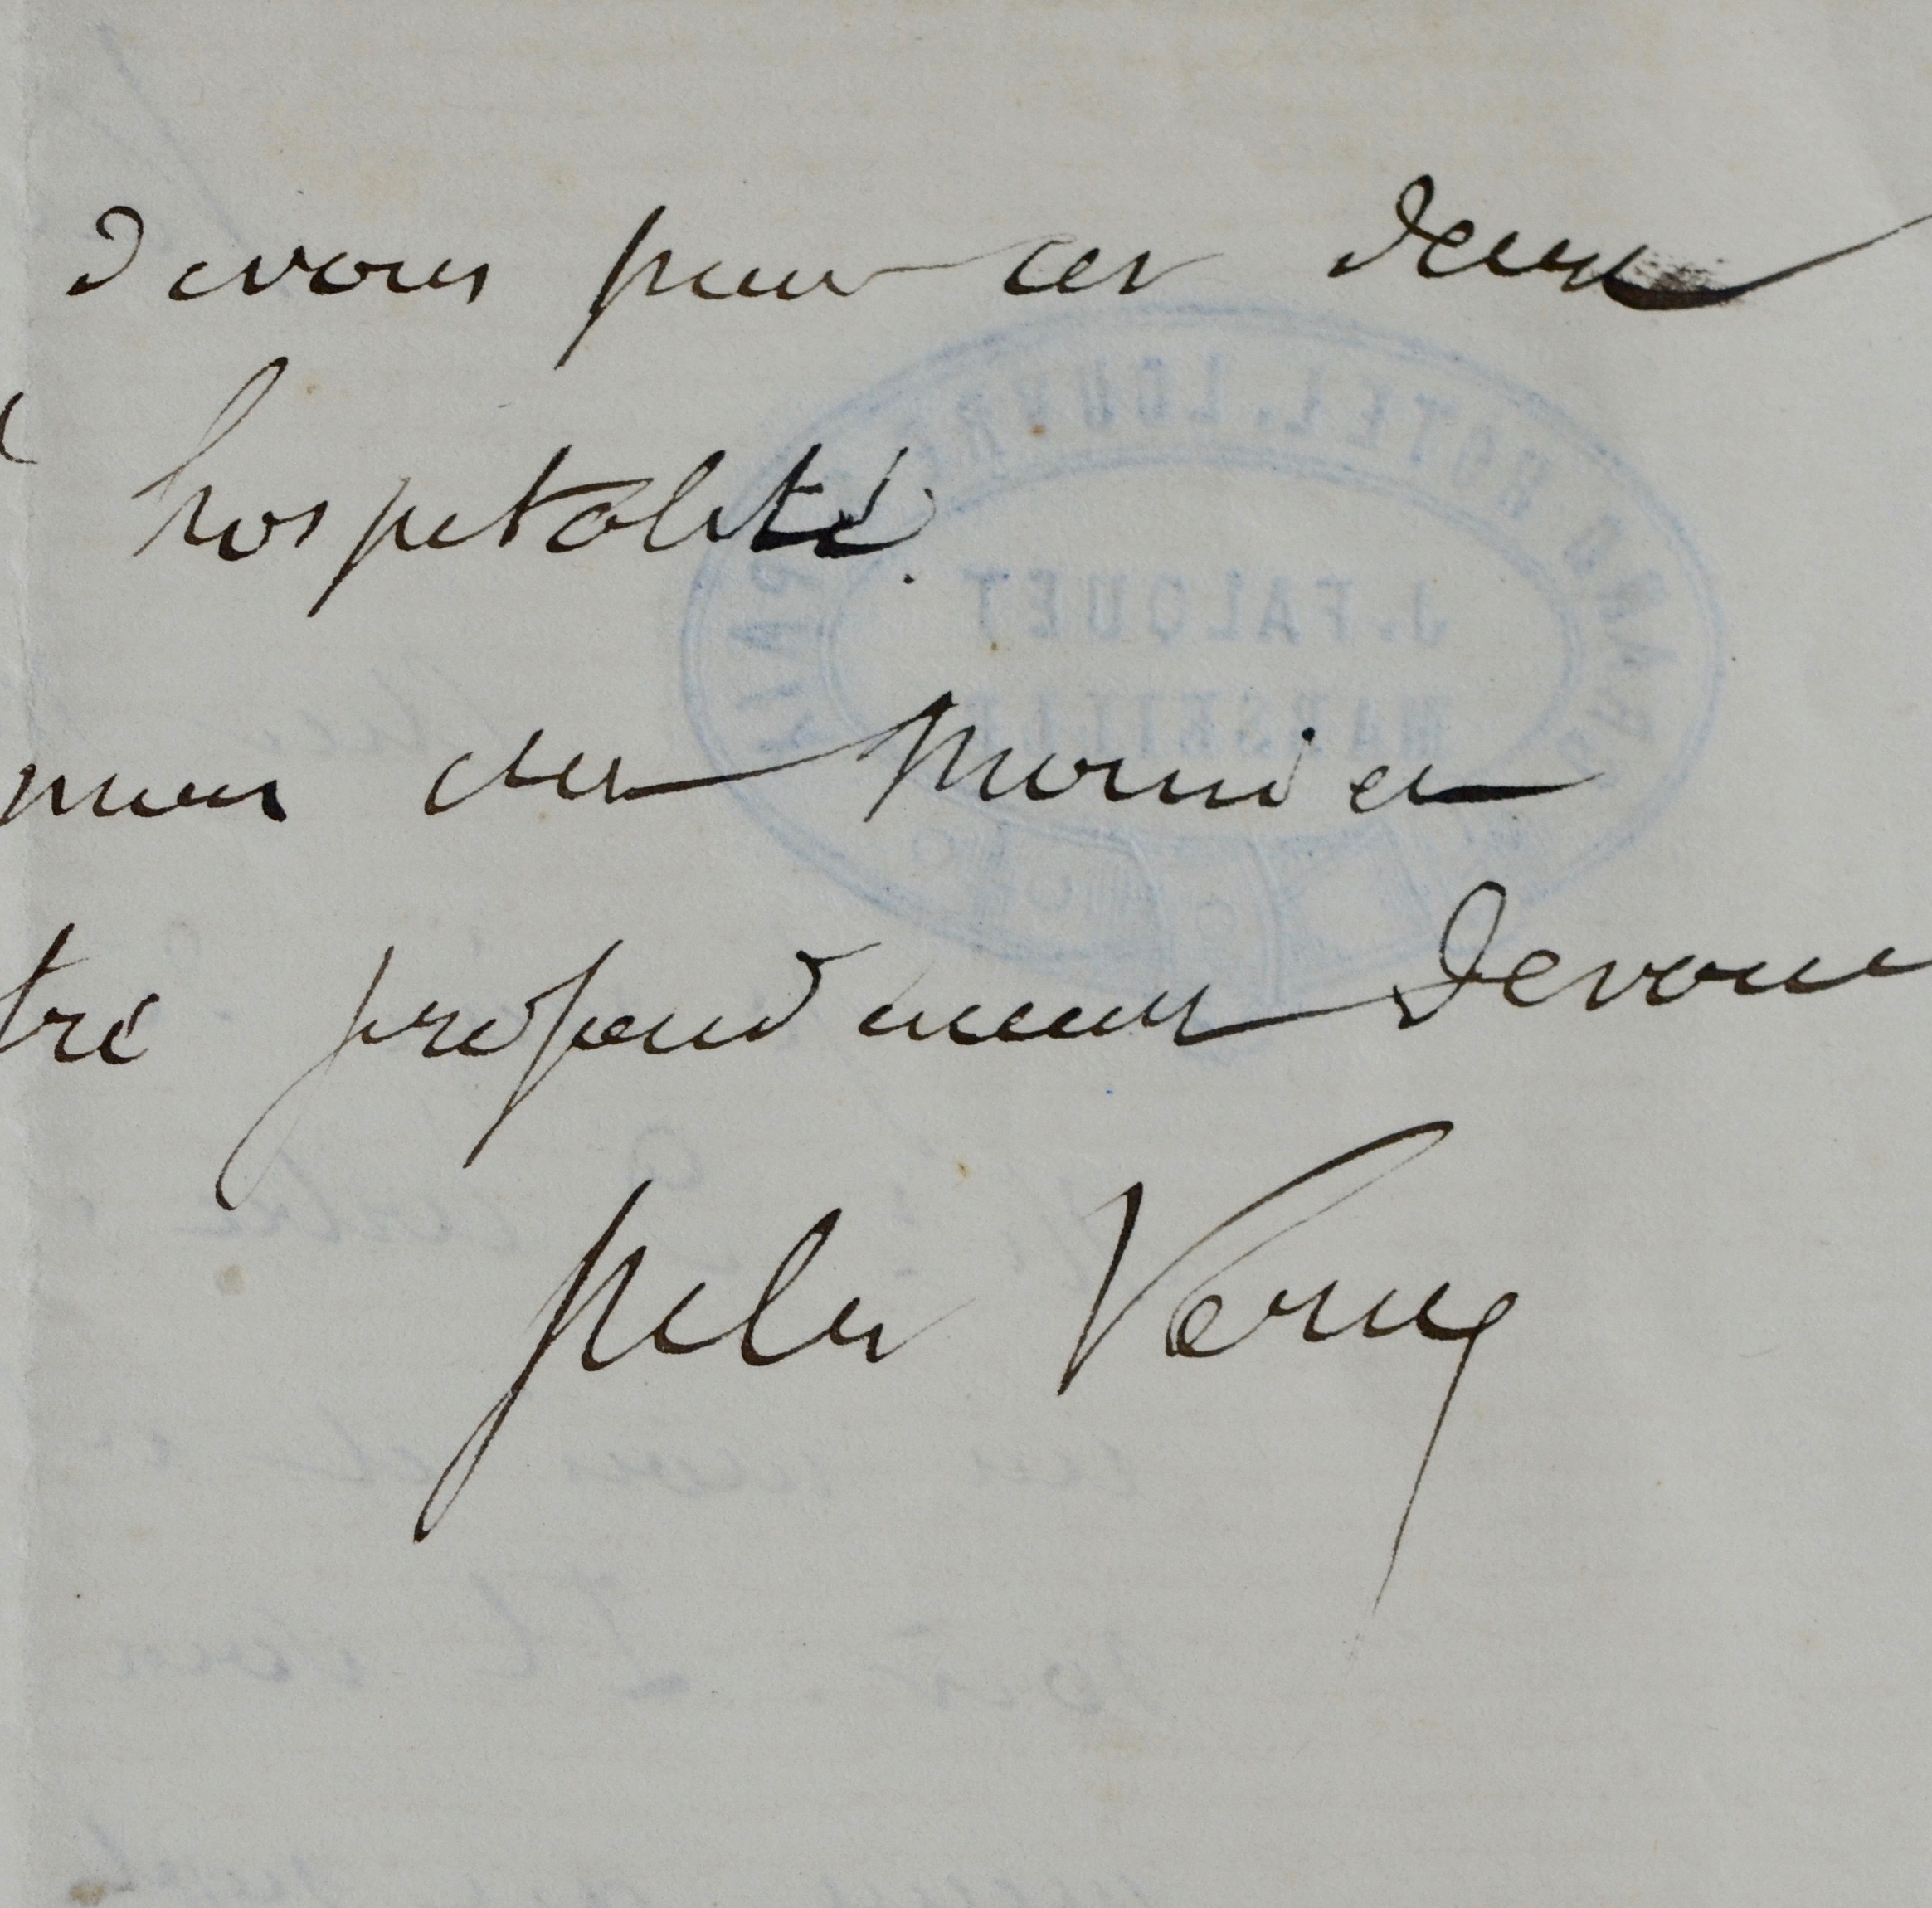 devons pour ces deux
hospitalité.
mon cher Monsieur
tre profondement devoué
Jules Verne
GRAND HOTEL. LOUVRE & PAIX
J. FALQUET
MARSEILLE